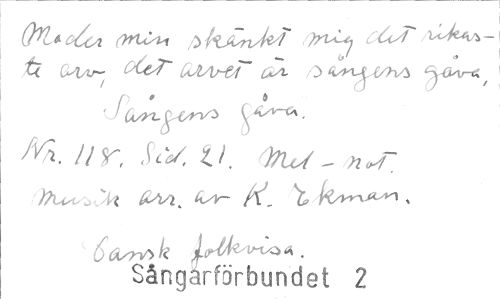 Moder min skänkt mig det rikas-
te arv, det arvet är sångens gåva,
Sångens gåva.
Nr. 118. Sid. 21. Mel-not.
musik arr. av K. Ekman.
Dansk folkvisa.
Sångarförbundet 2